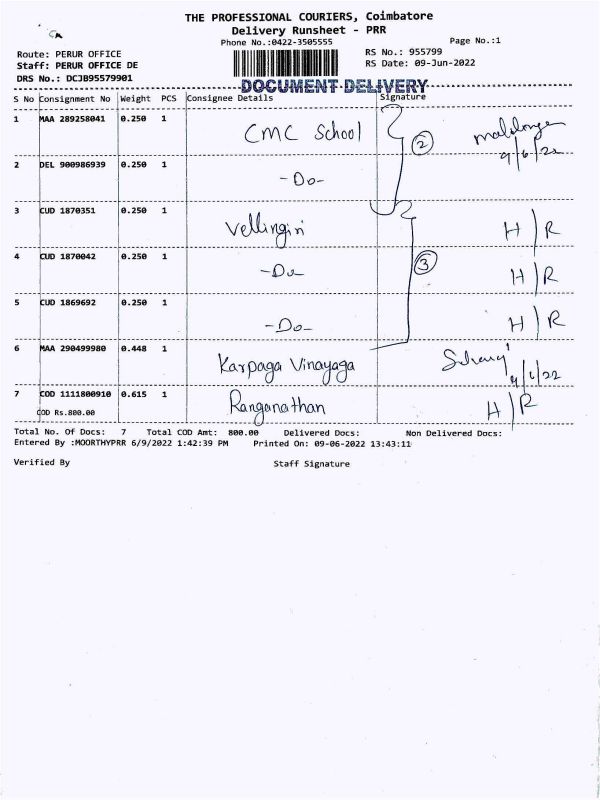 THE PROFESSIONAL COURIERS, Coimbatore
Delivery Runsheet - PRR
Phone No.:0422-3505555
Page No.:1
Route: PERUR OFFICE
RS No.: 955799
Staff: PERUR OFFICE DE
RS Date: 09-Jun-2022
DRS No.: DCJB95579901
DOCUMENT DELIVERY
S No Consignment No Weight PCS Consignee Details Signature
1 MAA 289258041 0.250 1 CMC School 2
9/6/22
2 DEL 900986939 0.250 1 -Do-
3 CUD 1870351 0.250 1 Vellingiri H/R
4 CUD 1870042 0.250 1 -Do- 3 H/R
5 CUD 1869692 0.250 1 -Do- H/R
6 MAA 290499980 0.448 1 Karpaga Vinayaga
9/6/22
7 COD 1111800910 0.615 1 Ranganathan H/R
COD Rs.800.00
Total No. Of Docs: 7 Total COD Amt: 800.00 Delivered Docs: Non Delivered Docs:
Entered By :MOORTHYPRR 6/9/2022 1:42:39 PM Printed On: 09-06-2022 13:43:11
Verified By Staff Signature